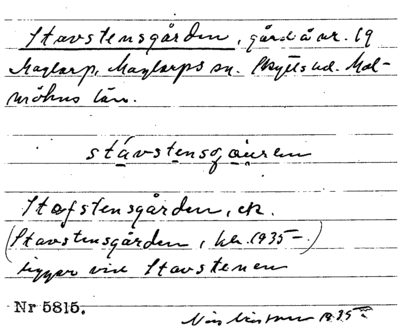 Stavstensgården, gård å nr. 19
Maglarp, Maglarps sn. Skytts hd. Mal-
möhus län.
stávstensgå̱uren
Stafstensgården, ek.
(Stavstensgården, kk. 1935-.)
ligger vid Stavstenen
Nr 5815.
1935